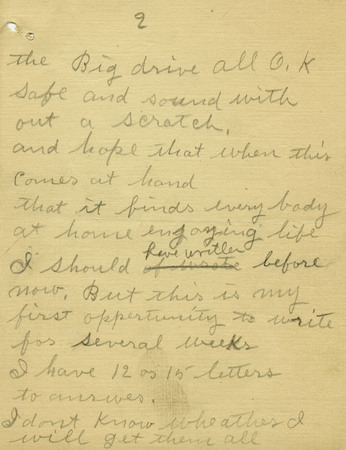 2
the Big drive all O.K
safe and sound with
out a scratch.
and hope that when this
comes at hand
that it finds every body
at home engoying life
have writlen
I should of wrote before
now. But this is my
first opportunity to write
for several weeks
I have 12 or 15 letters
to answer.
I dont know wheather I
will get them all